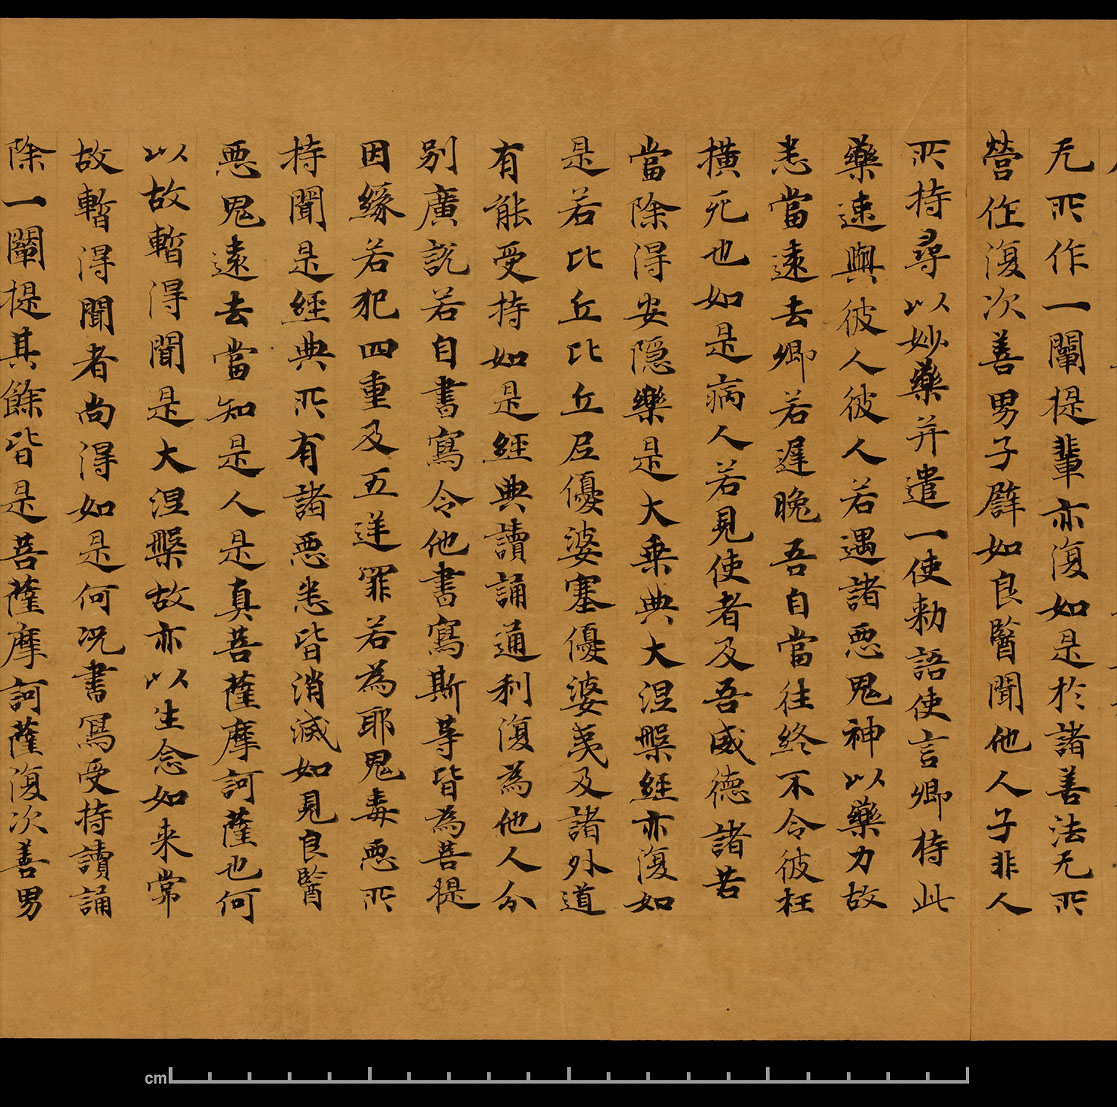 无所作一闡提輩亦復如是於諸善法无所
營作復次善男子譬如良醫聞他人子非人
所持尋以妙藥并遣一使勑語使言卿持此
藥速與彼人彼人若遇諸惡鬼神以藥力故
悉當遠去卿若遲晚吾自當往終不令彼枉
撗死也如是病人若見使者及吾威德諸苦
當除得安隱樂是大乘典大涅槃經亦復如
是若比丘比丘尼優婆塞優婆夷及諸外道
有能受持如是經典讀誦通利復為他人分
別廣說若自書寫令他書寫斯等皆為菩提
因緣若犯四重及五逆罪若為耶鬼毒惡所
持聞是經典所有諸惡悉皆消滅如見良醫
惡鬼遠去當知是人是真菩薩摩訶薩也何
以故暫得聞是大涅槃故亦以生念如来常
故暫得聞者尚得如是何況書寫受持讀誦
除一闡提其餘皆是菩薩摩訶薩復次善男